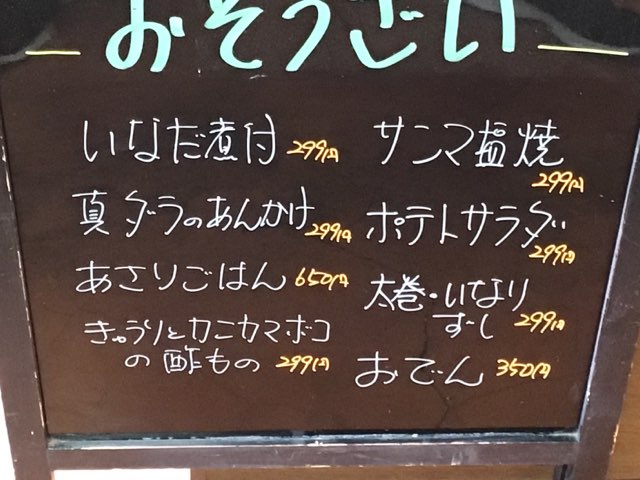 おそうざい
いなだ煮付 299円
真ダラのあんかけ 299円
あさりごはん 650円
きゅうりとカニカマボコ
の酢もの 299円
サンマ塩焼
299円
ポテトサラダ
299円
太巻・いなり
ずし 299円
おでん 350円